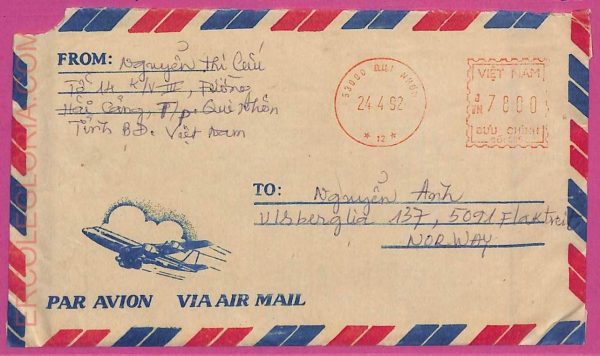 FROM: Nguyễn Thì Cưu
Tổ 14 K/V III, Đường
Hải Cảng, T/p. Quì Nhơn
Tỉnh BĐ. Việt Nam
53000 QUI NHON
24.4.92
* 12 *
VIỆT NAM
7800
BƯU CHÍNH
TO: Nguyễn Anh
Visberglia 137, 5091 Flaktveit
NORWAY
PAR AVION VIA AIR MAIL
ERCOLEGLORIA.COM